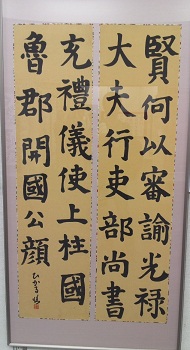 賢何以審諭光禄
大夫行吏部尚書
充禮儀使上柱國
魯郡開國公顔
ひかる